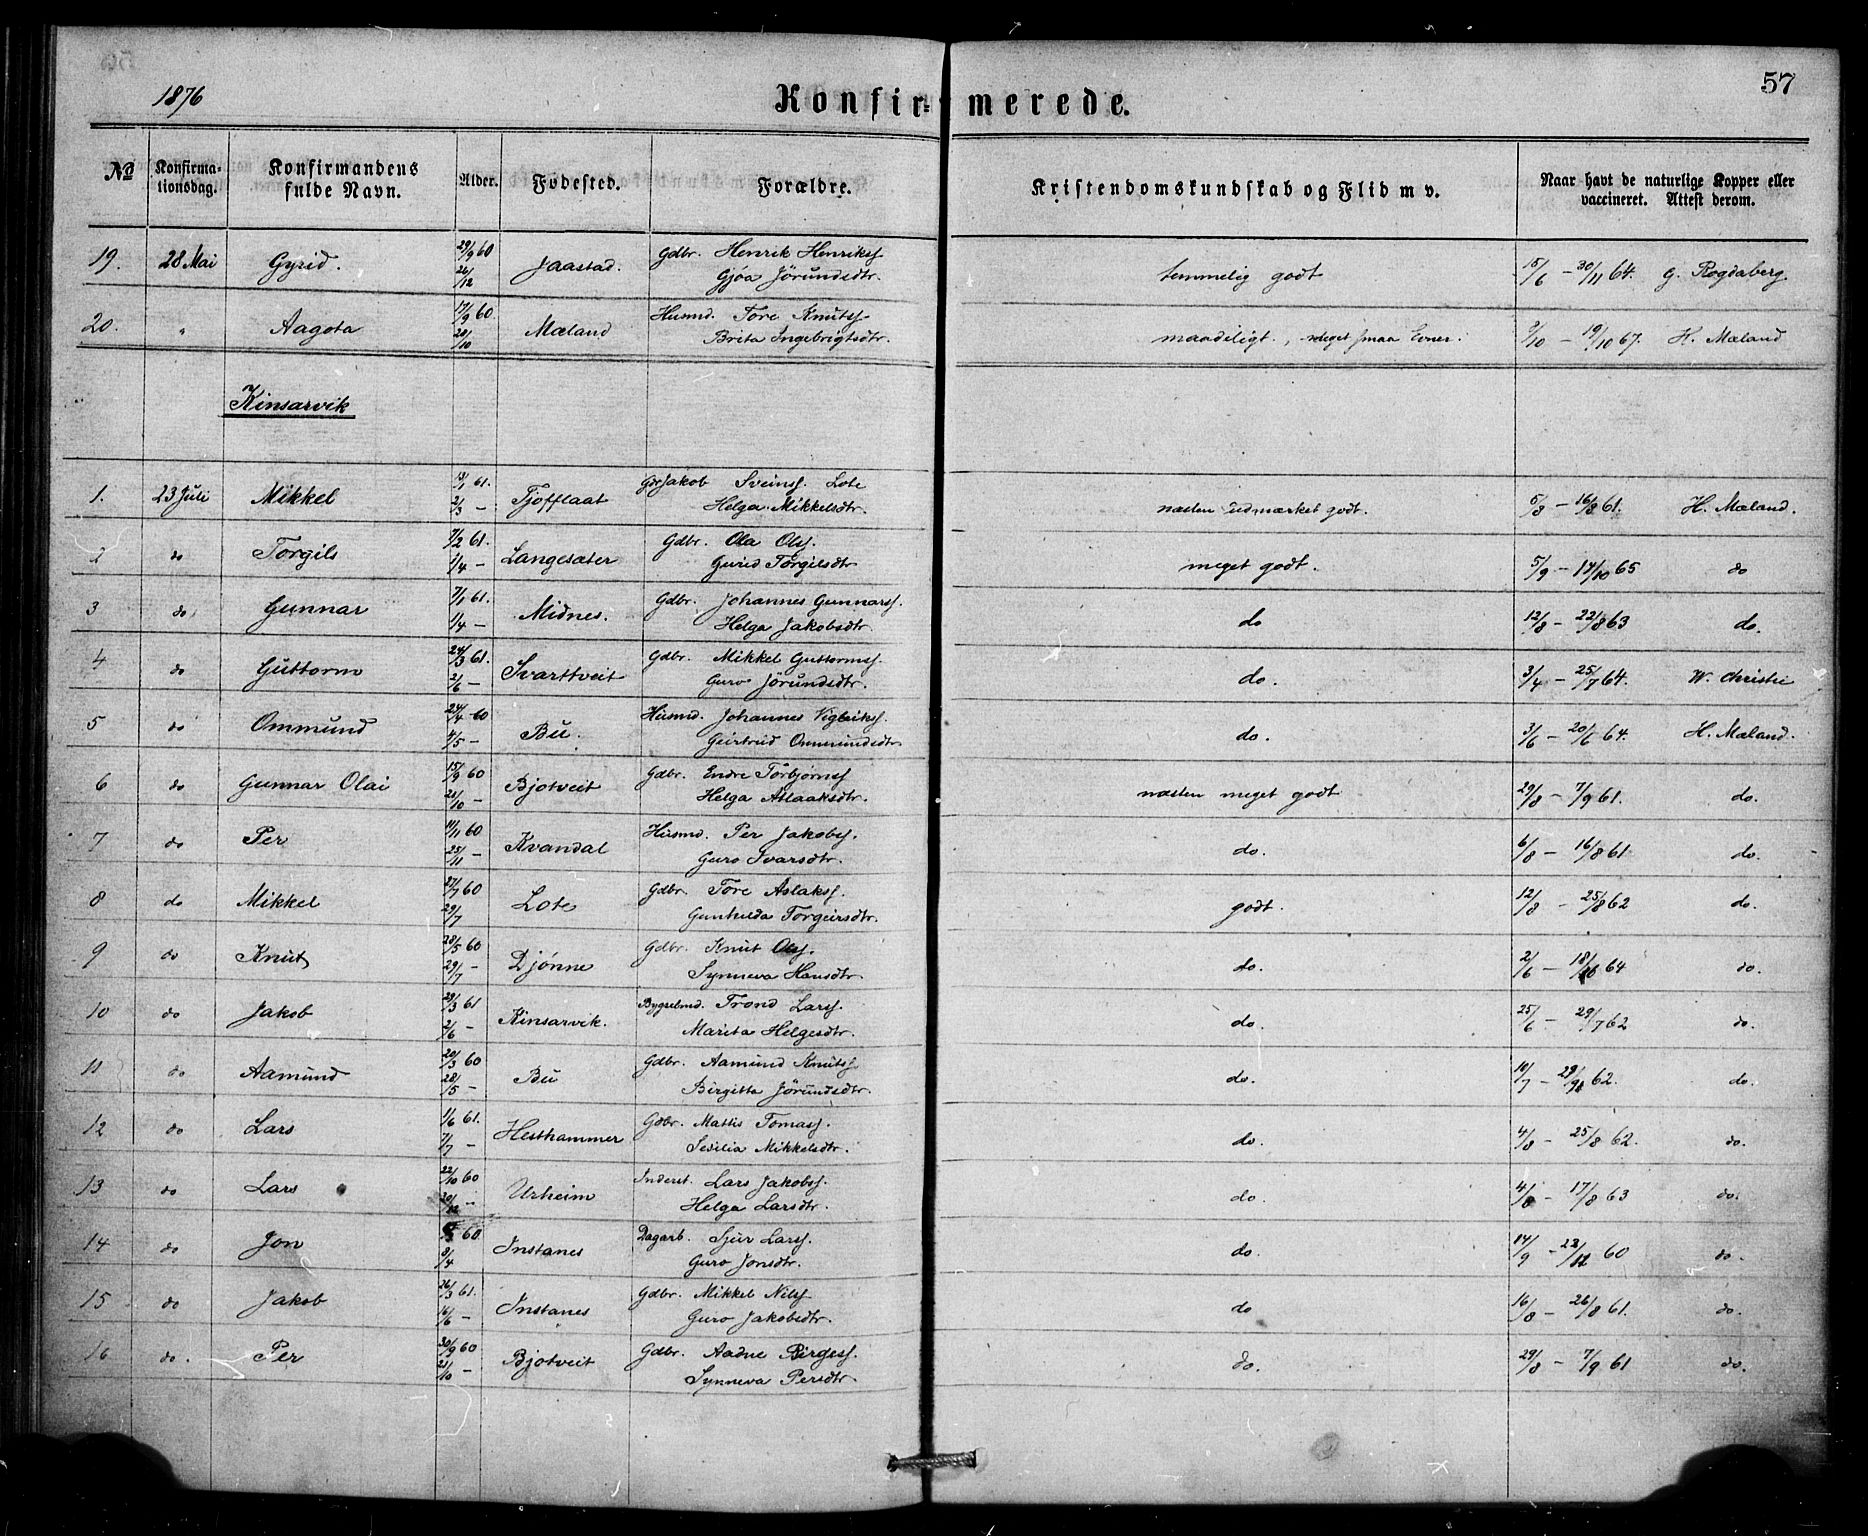 1876
Konfirmerede.
57
No
Konfirmationsdag.
Konfirmandens fulde Navn.
Alder.
Fødested.
Forældre.
Kristendomskundskab og Flid m v.
Naar havt de naturlige Kopper eller vaccineret. Attest derom.
19. 28 Mai Gyrid. 29/9 60 26/12 Jaastad. Gdbr. Henrik Henrikss. Gjøa Jørundsdtr. temmelig godt 15/6 – 30/11 64. G. Rogdaberg
20. " Aagota 17/9 60 28/10 Mæland Husmd. Tore Knutss. Brita Ingebrigtsdtr. maadeligt., meget smaa Evner. 9/10 – 19/10 67. H. Mæland
Kinsarvik
1. 23 Juli Mikkel 13/1 61. 2/3 – Tjofflaat Gdbr Jakob Sveinss. Lote Helga Mikkelsdtr. næsten udmærket godt. 5/8 – 16/8 61. H. Mæland.
2 do Torgils 7/2 61. 1/4 – Langesæter Gdbr. Ola Olss. Gurid Torgilsdtr meget godt. 5/9 – 17/10 65 do
3 do Gunnar 7/1 61. 1/4 – Midnes. Gdbr. Johannes Gunnarss. Helga Jakobsdtr. do 12/8 – 22/8 63 do.
4 do Guttorm 24/3 61. 2/6 – Svarttveit Gdbr. Mikkel Guttormss. Guro Jørundsdtr. do. 3/4 – 25/7 64. W. Christie
5 do Ommund 24/4 – 60 4/5 – Bu. Husmd. Johannes Vigleikss. Geirtrud Ommundsdtr do. 3/6 – 20/6 64. H. Mæland.
6 do Gunnar Olai 15/9 60 21/10 – Bjotveit Gdbr. Endre Torbjørnss. Helga Aslaaksdtr. næsten meget godt 29/8 – 7/9 61. do.
7 do Per 11/11 60 25/11 – Kvandal Husmd. Per Jakobss. Guro Ivarsdtr. do. 6/8 – 16/8 61 do.
8 do Mikkel 27/7 60 29/7 Lote Gdbr. Tore Aslakss. Gunhilda Torgeirsdtr. godt. 12/8 – 25/8 62 do.
9 do Knut 28/5 60 29/7 – Djønne Gdbr. Knut Olss. Synneva Hansdtr. do. 2/6 – 18/10 64 do.
10 do Jakob 29/3 61 2/6 – Kinsarvik. Bygselmd. Trond Larss. Marita Helgesdtr. do. 25/6 – 29/7 62 do.
11 do Aamund 20/3 60 28/5 – Bu Gdbr. Aamund Knutss. Birgitta Jørundsdtr. do. 10/7 – 29/9 62. do.
12 do Lars 1/6 61. 7/7 – Hesthammer Gdbr. Mattis Tomass. Sesilia Mikkelsdtr. do. 4/8 – 25/8 62. do.
13 do Lars 22/10 60 20/12 – Urheim Inderst. Lars Jakobss. Helga Larsdtr. do. 4/8 – 17/8 63 do.
14 do Jon 60 8/4 Instanes Dagarb. Sjur Larss. Guro Jonsdtr. do. 14/9 – 23/12 60 do.
15 do Jakob 26/3 61. 16/6 – Instanes Gdbr. Mikkel Nilss. Guro Jakobsdtr. do 16/8 – 26/8 61. do.
16 do. Per 30/9 60 21/10 – Bjotveit Gdbr. Aadne Birgess. Synneva Persdtr. do. 29/8 – 7/9 61 do.